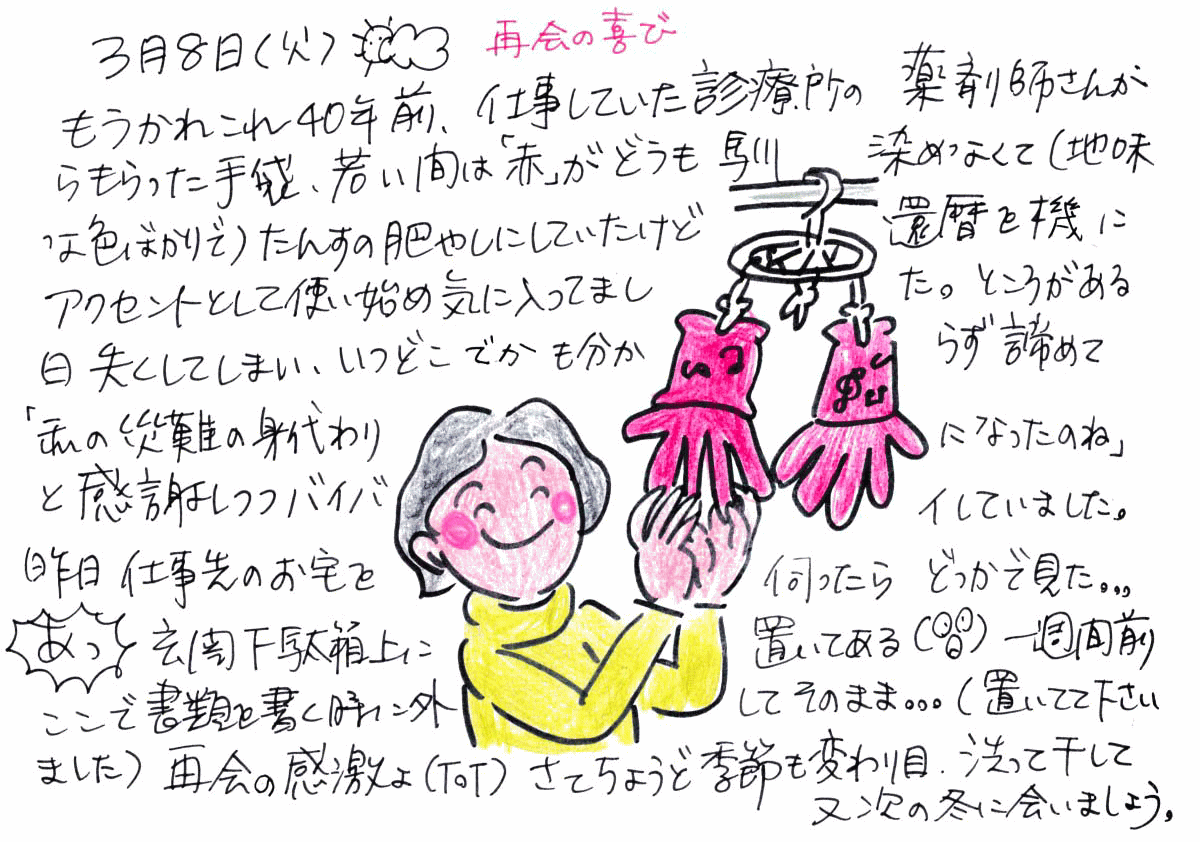 3月8日(火) 再会の喜び
もうかれこれ40年前、仕事していた診療所の 薬剤師さんか
らもらった手袋、若い間は「赤」がどうも馴染めなくて(地味
な色ばかりで)たんすの肥やしにしていたけど 還暦を機に
アクセントとして使い始め気に入ってまし た。ところがある
日失くしてしまい、いつどこでかも分か らず諦めて
「私の災難の身代わり になったのね」
と感謝しつつバイバ イしていました。
昨日仕事先のお宅を 伺ったら どっかで見た...
あっ 玄関下駄箱上に 置いてある 一週間前
ここで書類を書く時に外 してそのまま...(置いてて下さい
ました)再会の感激よ(ToT)さてちょうど季節も変わり目、洗って干して
又次の冬に会いましょう。